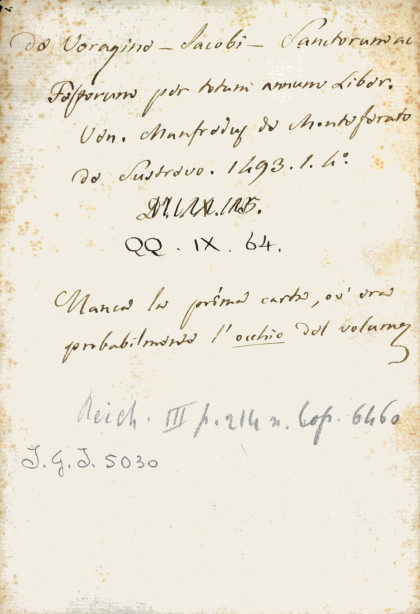 de Voragine - Jacobi - Sanctorum ac
Festorum per totum annum Liber.
Ven. Manfredus de Monteferato
de Sustrevo. 1493. 1. 4º.
QQ. IX. 64.
Manca la prima carta, ov' era
probabilmente l'occhio del volume
Reich. III p. 214 n. Cop. 6460
I.G.I. 5030